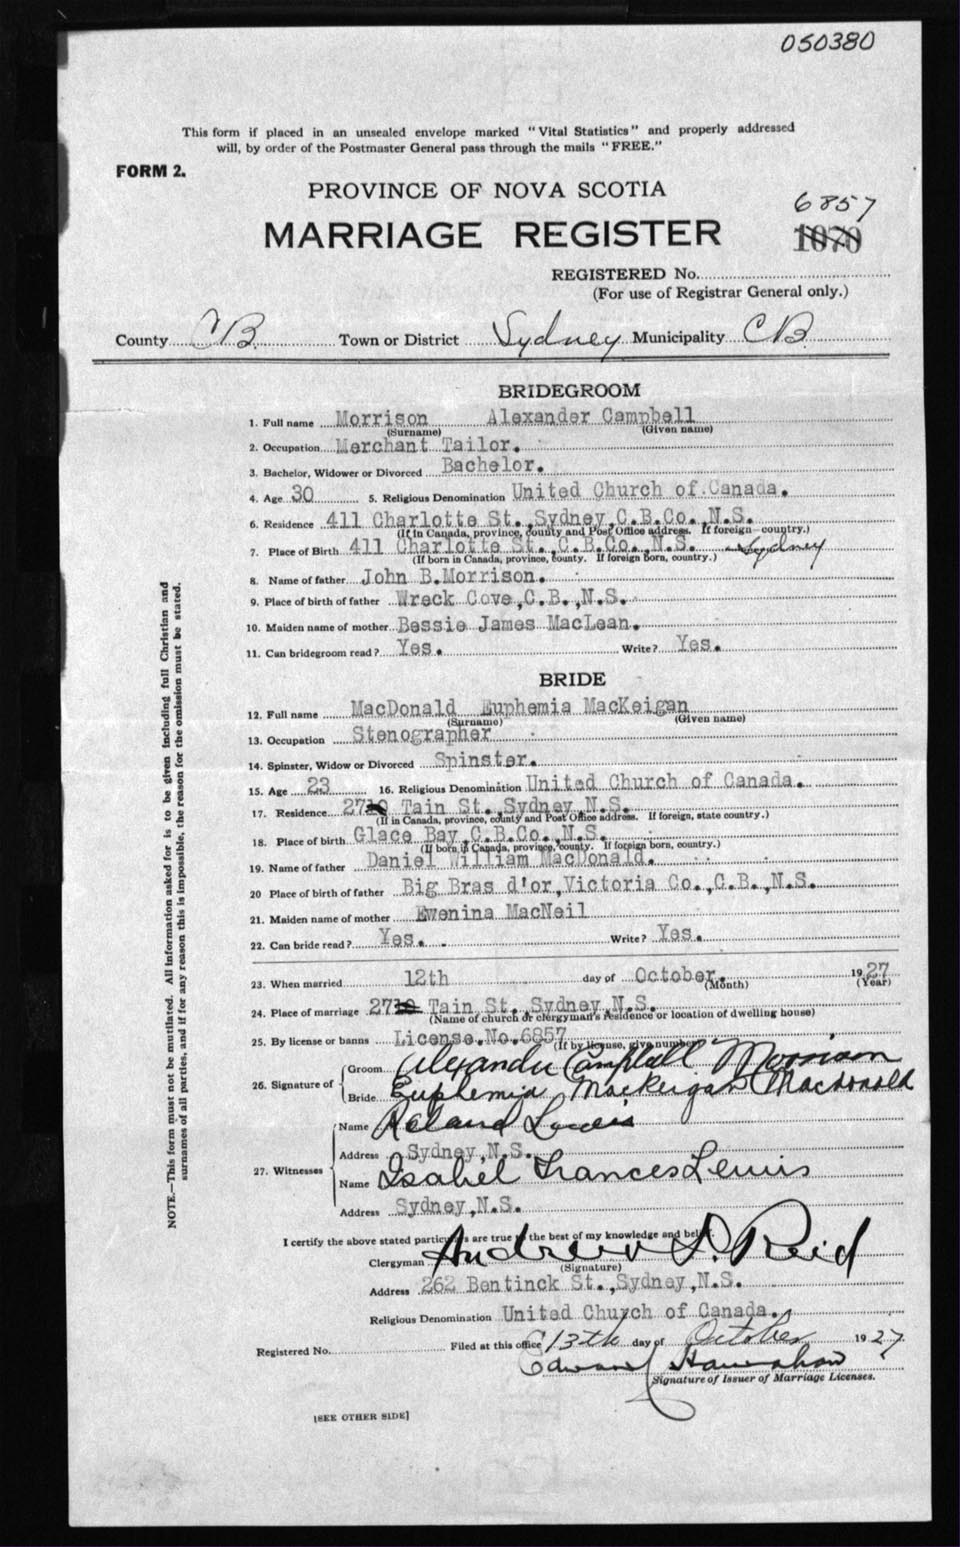 050380
This form if placed in an unsealed envelope marked "Vital Statistics" and properly addressed
will, by order of the Postmaster General pass through the mails "FREE."
FORM 2.
PROVINCE OF NOVA SCOTIA
6857
MARRIAGE REGISTER 1070
REGISTERED No.
(For use of Registrar General only.)
County CB. Town or District Sydney Municipality CB
BRIDEGROOM
1. Full name Morrison Alexander Campbell
(Surname) (Given name)
2. Occupation Merchant Tailor.
3. Bachelor, Widower or Divorced Bachelor.
4. Age 30 5. Religious Denomination United Church of Canada.
6. Residence 411 Charlotte St., Sydney, C.B.Co., N.S.
(If in Canada, province, county and Post Office address. If foreign country.)
7. Place of Birth 411 Charlotte St., C.B.Co., N.S. Sydney
(If born in Canada, province, county. If foreign born, country.)
8. Name of father John B.Morrison.
9. Place of birth of father Wreck Cove, C.B., N.S.
10. Maiden name of mother Bessie James MacLean.
11. Can bridegroom read? Yes. Write? Yes.
BRIDE
12. Full name MacDonald Euphemia MacKeigan
(Surname) (Given name)
13. Occupation Stenographer
14. Spinster, Widow or Divorced Spinster.
15. Age 23 16. Religious Denomination United Church of Canada.
17. Residence 27 Tain St., Sydney, N.S.
(If in Canada, province, county and Post Office address. If foreign, state country.)
18. Place of birth Glace Bay, C.B.Co., N.S.
(If born in Canada, province, county. If foreign born, country.)
19. Name of father Daniel William MacDonald.
20 Place of birth of father Big Bras d'or, Victoria Co., C.B., N.S.
21. Maiden name of mother Ewenina MacNeil
22. Can bride read? Yes. Write? Yes.
23. When married 12th day of October. 1927
(Month) (Year)
24. Place of marriage 27 Tain St., Sydney, N.S.
(Name of church or clergyman's residence or location of dwelling house)
25. By license or banns License. No. 6857
(If by license, give number)
26. Signature of
Groom Alexander Campbell Morrison
Bride Euphemia MacKeigan Macdonald
27. Witnesses
Name Roland Lewis
Address Sydney, N.S.
Name Isabel Frances Lewis
Address Sydney, N.S.
I certify the above stated particulars are true to the best of my knowledge and belief.
Clergyman Andrew D. Reid
(Signature)
Address 262 Bentinck St., Sydney, N.S.
Religious Denomination United Church of Canada.
Registered No. Filed at this office 13th day of October 1927
Edward
Signature of Issuer of Marriage Licenses.
[SEE OTHER SIDE]
NOTE.—This form must not be mutilated. All information asked for is to be given including full Christian and
surnames of all parties, and if for any reason this is impossible, the reason for the omission must be stated.